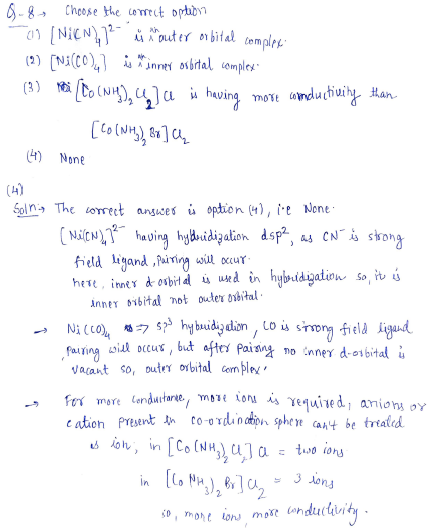 Q-8→ Choose the correct option
(1) [Ni(CN)4]2- is an outer orbital complex.
(2) [Ni(CO)4] is an inner orbital complex.
(3) [Co(NH3)2Cl2]Cl is having more conductivity than
[Co(NH3)2Br]Cl2
(4) None
(4)
Soln:→ The correct answer is option (4), i.e None.
[Ni(CN)4]2- having hybridization dsp2, as CN- is strong
field ligand, pairing will occur.
here, inner d-orbital is used in hybridization so, it is
inner orbital not outer orbital.
→ Ni(CO)4 ⇒ sp3 hybridization, CO is strong field ligand
pairing will occur, but after pairing no inner d-orbital is
vacant so, outer orbital complex.
→ For more conductance, more ions is required, anions or
cation present in co-ordination sphere can't be treated
as ion, in [Co(NH3)2Cl2]Cl = two ions
in [Co NH3)2Br]Cl2 = 3 ions
so, more ions, more conductivity.